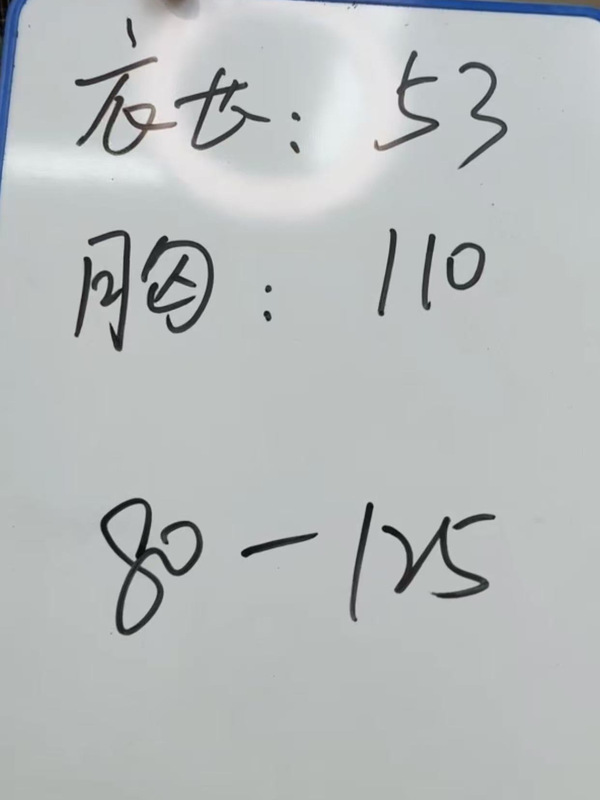 衣长：53
胸：110
80－125